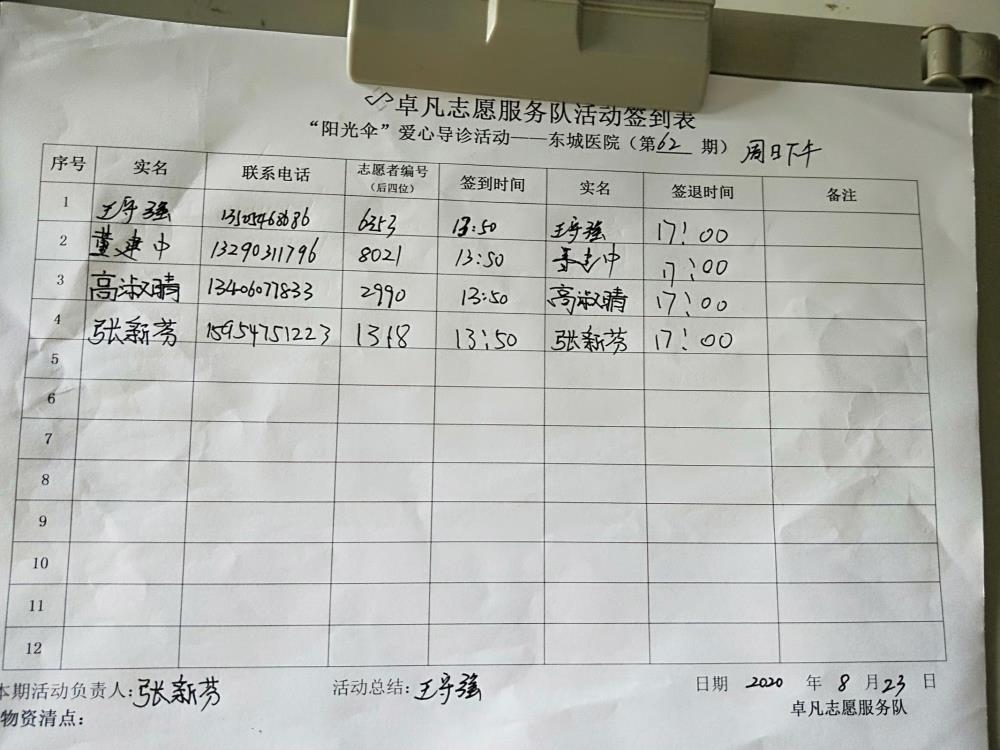 卓凡志愿服务队活动签到表
“阳光伞”爱心导诊活动——东城医院（第62期）周日下午
序号 实名 联系电话 志愿者编号（后四位） 签到时间 实名 签退时间 备注
1 王守强 6353 13:50 王守强 17:00
2 董建中 13290311796 8021 13:50 董建中 17:00
3 高淑晴 13406077833 2990 13:50 高淑晴 17:00
4 张新芬 15954751223 1318 13:50 张新芬 17:00
5
6
7
8
9
10
11
12
本期活动负责人:张新芬 活动总结:王守强 日期 2020 年 8 月 23 日
物资清点: 卓凡志愿服务队